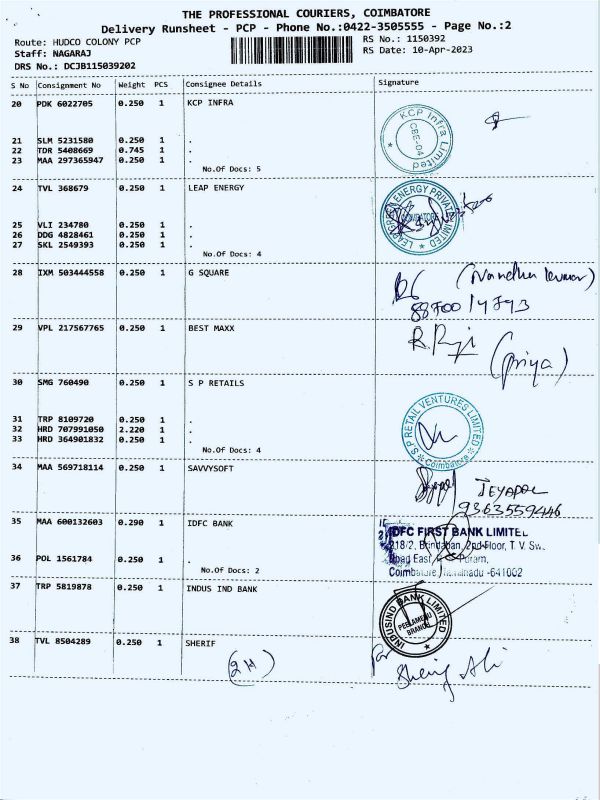 THE PROFESSIONAL COURIERS, COIMBATORE
Delivery Runsheet - PCP - Phone No.:0422-3505555 - Page No.:2
Route: HUDCO COLONY PCP RS No.: 1150392
Staff: NAGARAJ RS Date: 10-Apr-2023
DRS No.: DCJB115039202
S No Consignment No Weight PCS Consignee Details Signature
20 PDK 6022705 0.250 1 KCP INFRA
KCP Infra Limited
CBE-04
21 SLM 5231580 0.250 1 .
22 TDR 5408669 0.745 1 .
23 MAA 297365947 0.250 1 .
No.Of Docs: 5
24 TVL 368679 0.250 1 LEAP ENERGY
LEAP GREEN ENERGY PRIVATE LIMITED
COIMBATORE
25 VLI 234780 0.250 1 .
26 DDG 4828461 0.250 1 .
27 SKL 2549393 0.250 1 .
No.Of Docs: 4
28 IXM 503444558 0.250 1 G SQUARE
(Nandha kumar)
29 VPL 217567765 0.250 1 BEST MAXX
(priya)
30 SMG 760490 0.250 1 S P RETAILS
S.P RETAIL VENTURES LIMITED
Coimbatore
31 TRP 8109720 0.250 1 .
32 HRD 707991050 2.220 1 .
33 HRD 364901832 0.250 1 .
No.Of Docs: 4
34 MAA 569718114 0.250 1 SAVVYSOFT
JEYAPAL
9363559446
35 MAA 600132603 0.290 1 IDFC BANK
IDFC FIRST BANK LIMITED
218/2, Brindaban, 2nd Floor, T. V. Sw.
Road East, Puram,
Coimbatore, Tamilnadu -641002
36 POL 1561784 0.250 1 .
No.Of Docs: 2
37 TRP 5819878 0.250 1 INDUS IND BANK
INDUSIND BANK LIMITED
BRANCH
38 TVL 8504289 0.250 1 SHERIF
(2H)
Sherif Ali